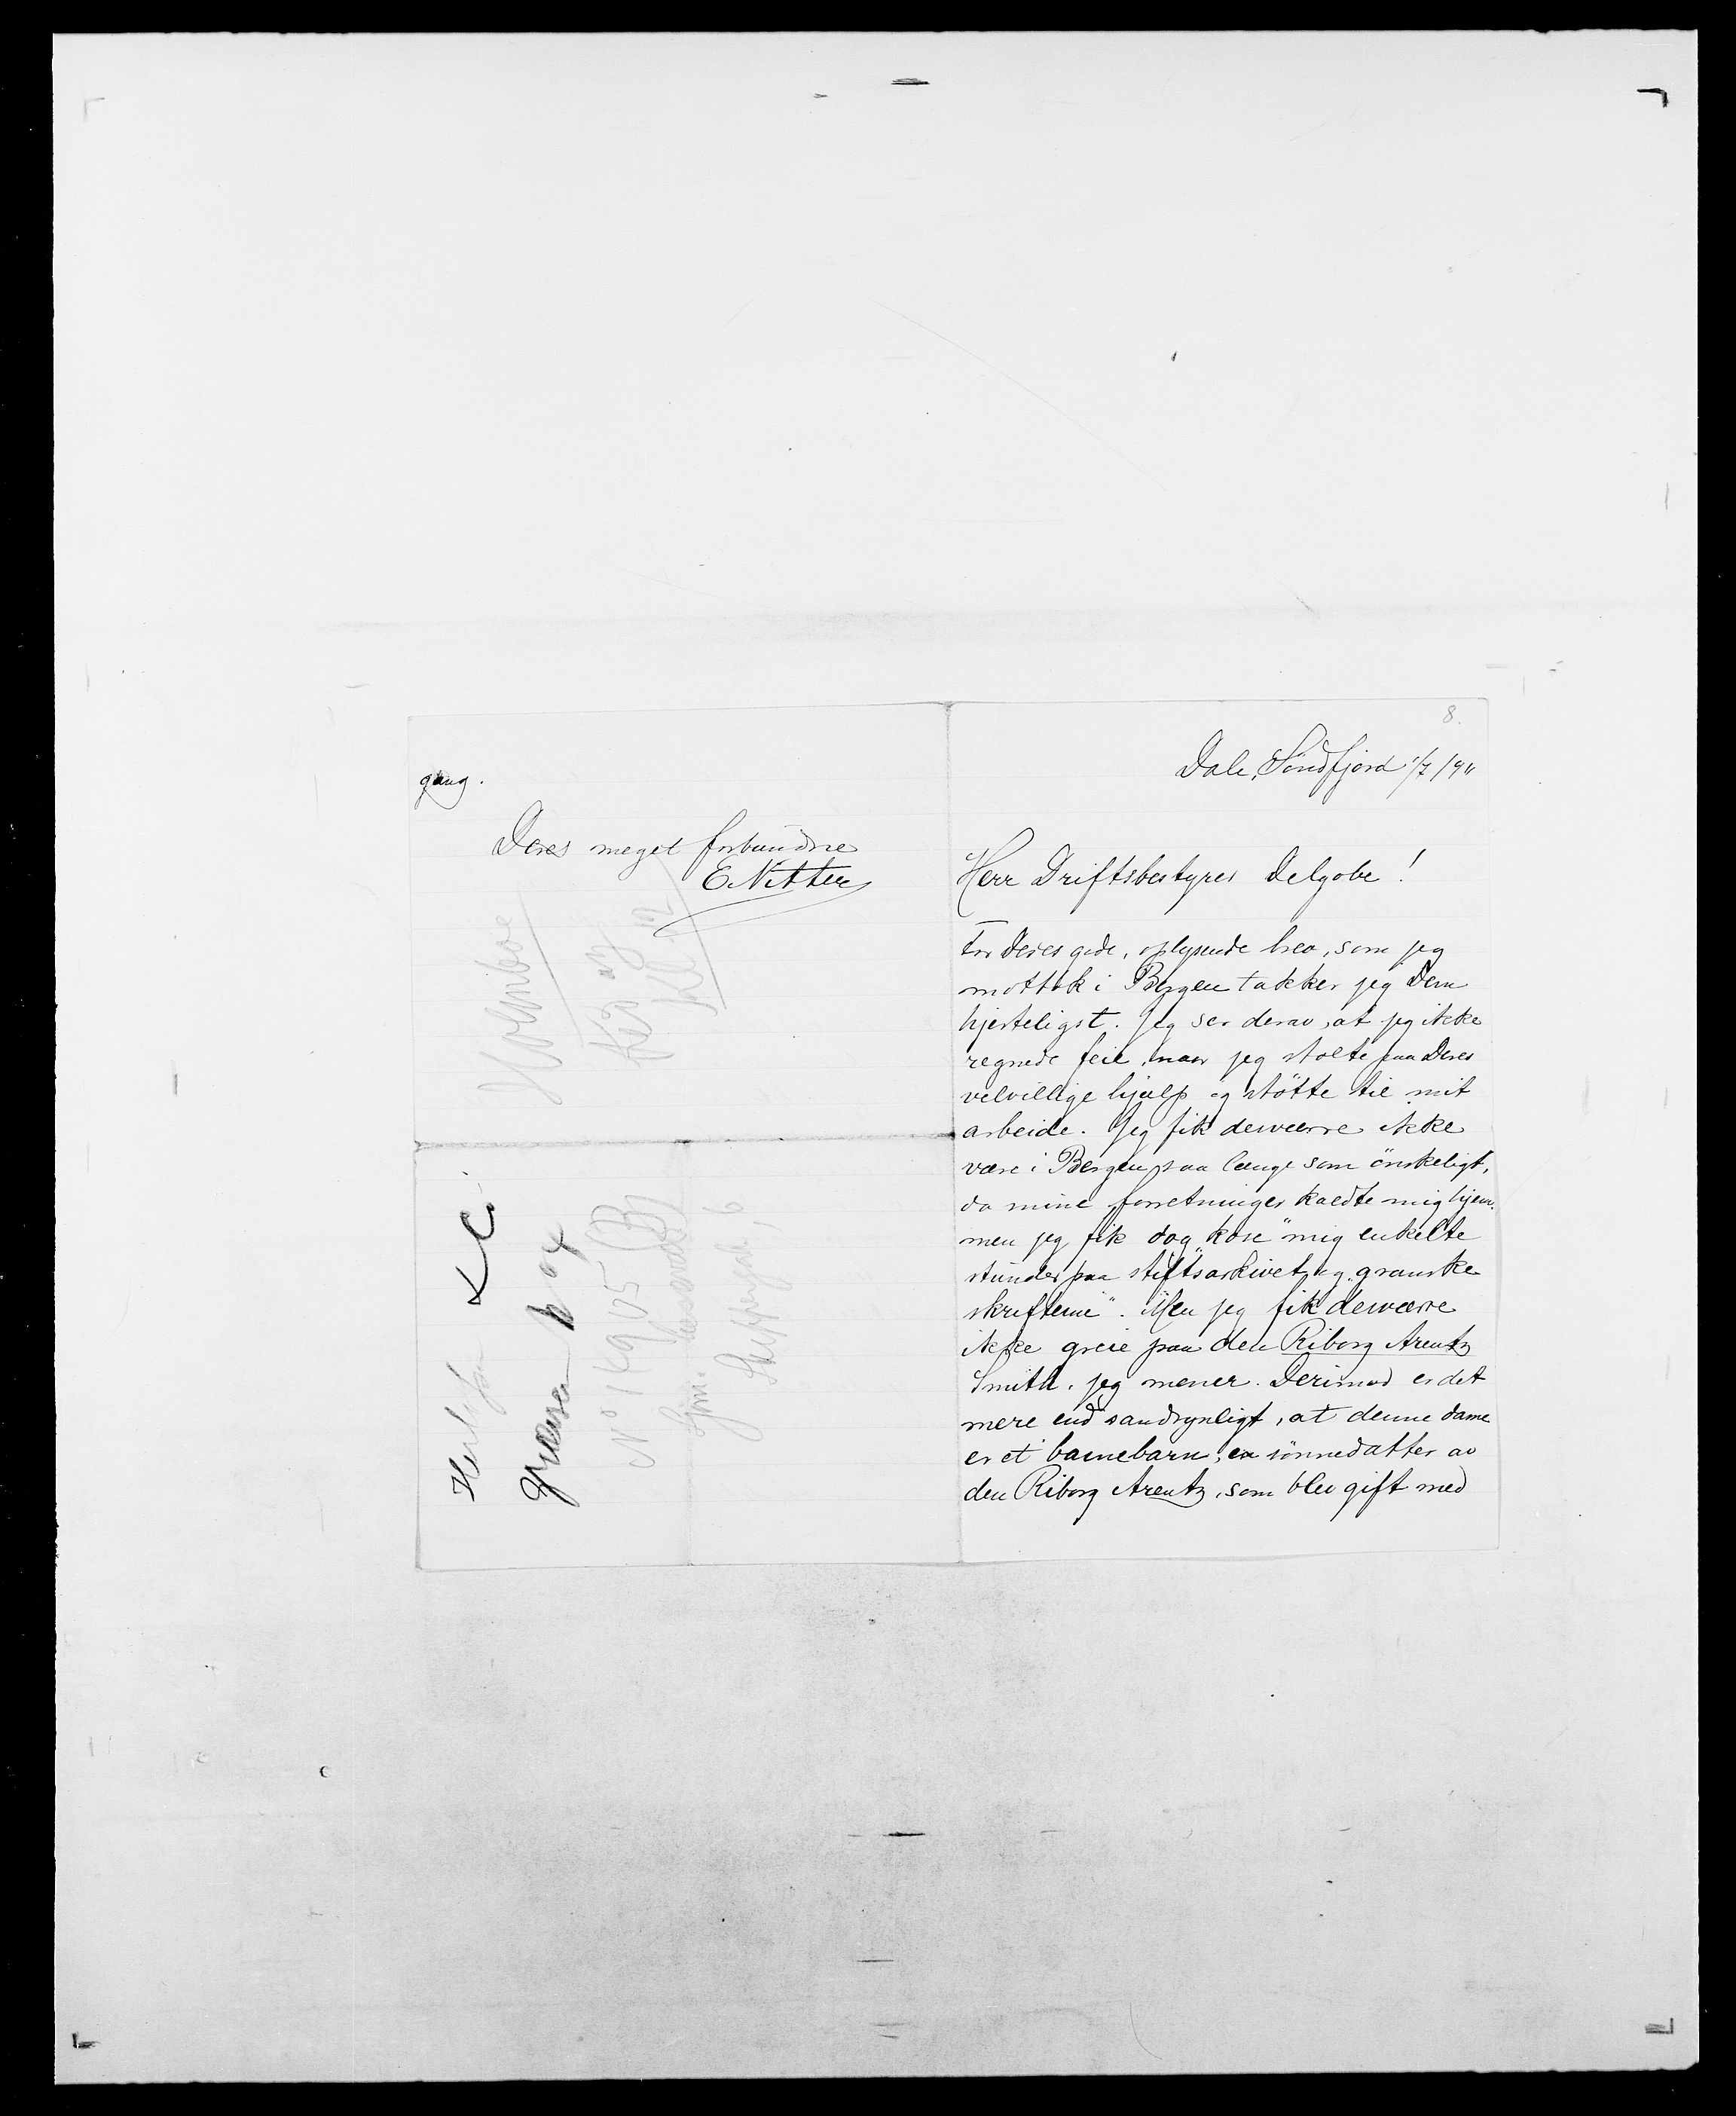 gang.
Deres meget forbundne
E. Nitter
Holmboe
N° 16905
8.
Dale, Söndfjord 1/7 1911
Herr Driftsbestyrer Delgobe!
For Deres gode, oplysende brev, som jeg
mottok i Bergen takker jeg Dem
hjerteligst. Jeg ser derav, at jeg ikke
regnede feil, naar jeg stolte paa Deres
velvillige hjælp og støtte til mit
arbeide. Jeg fik desværre ikke
være i Bergen saa længe som önskeligt,
da mine forretninger kaldte mig hjem.
men jeg fik dog "kose" mig enkelte
stunder paa stiftsarkivet og "granske
skrifterne". Men jeg fik desværre
ikke greie paa den Riborg Arentz
Smith, jeg mener. Derimod er det
mere end sandsynligt, at denne dame
er et barnebarn, en sönnedatter av
den Riborg Arentz, som blev gift med